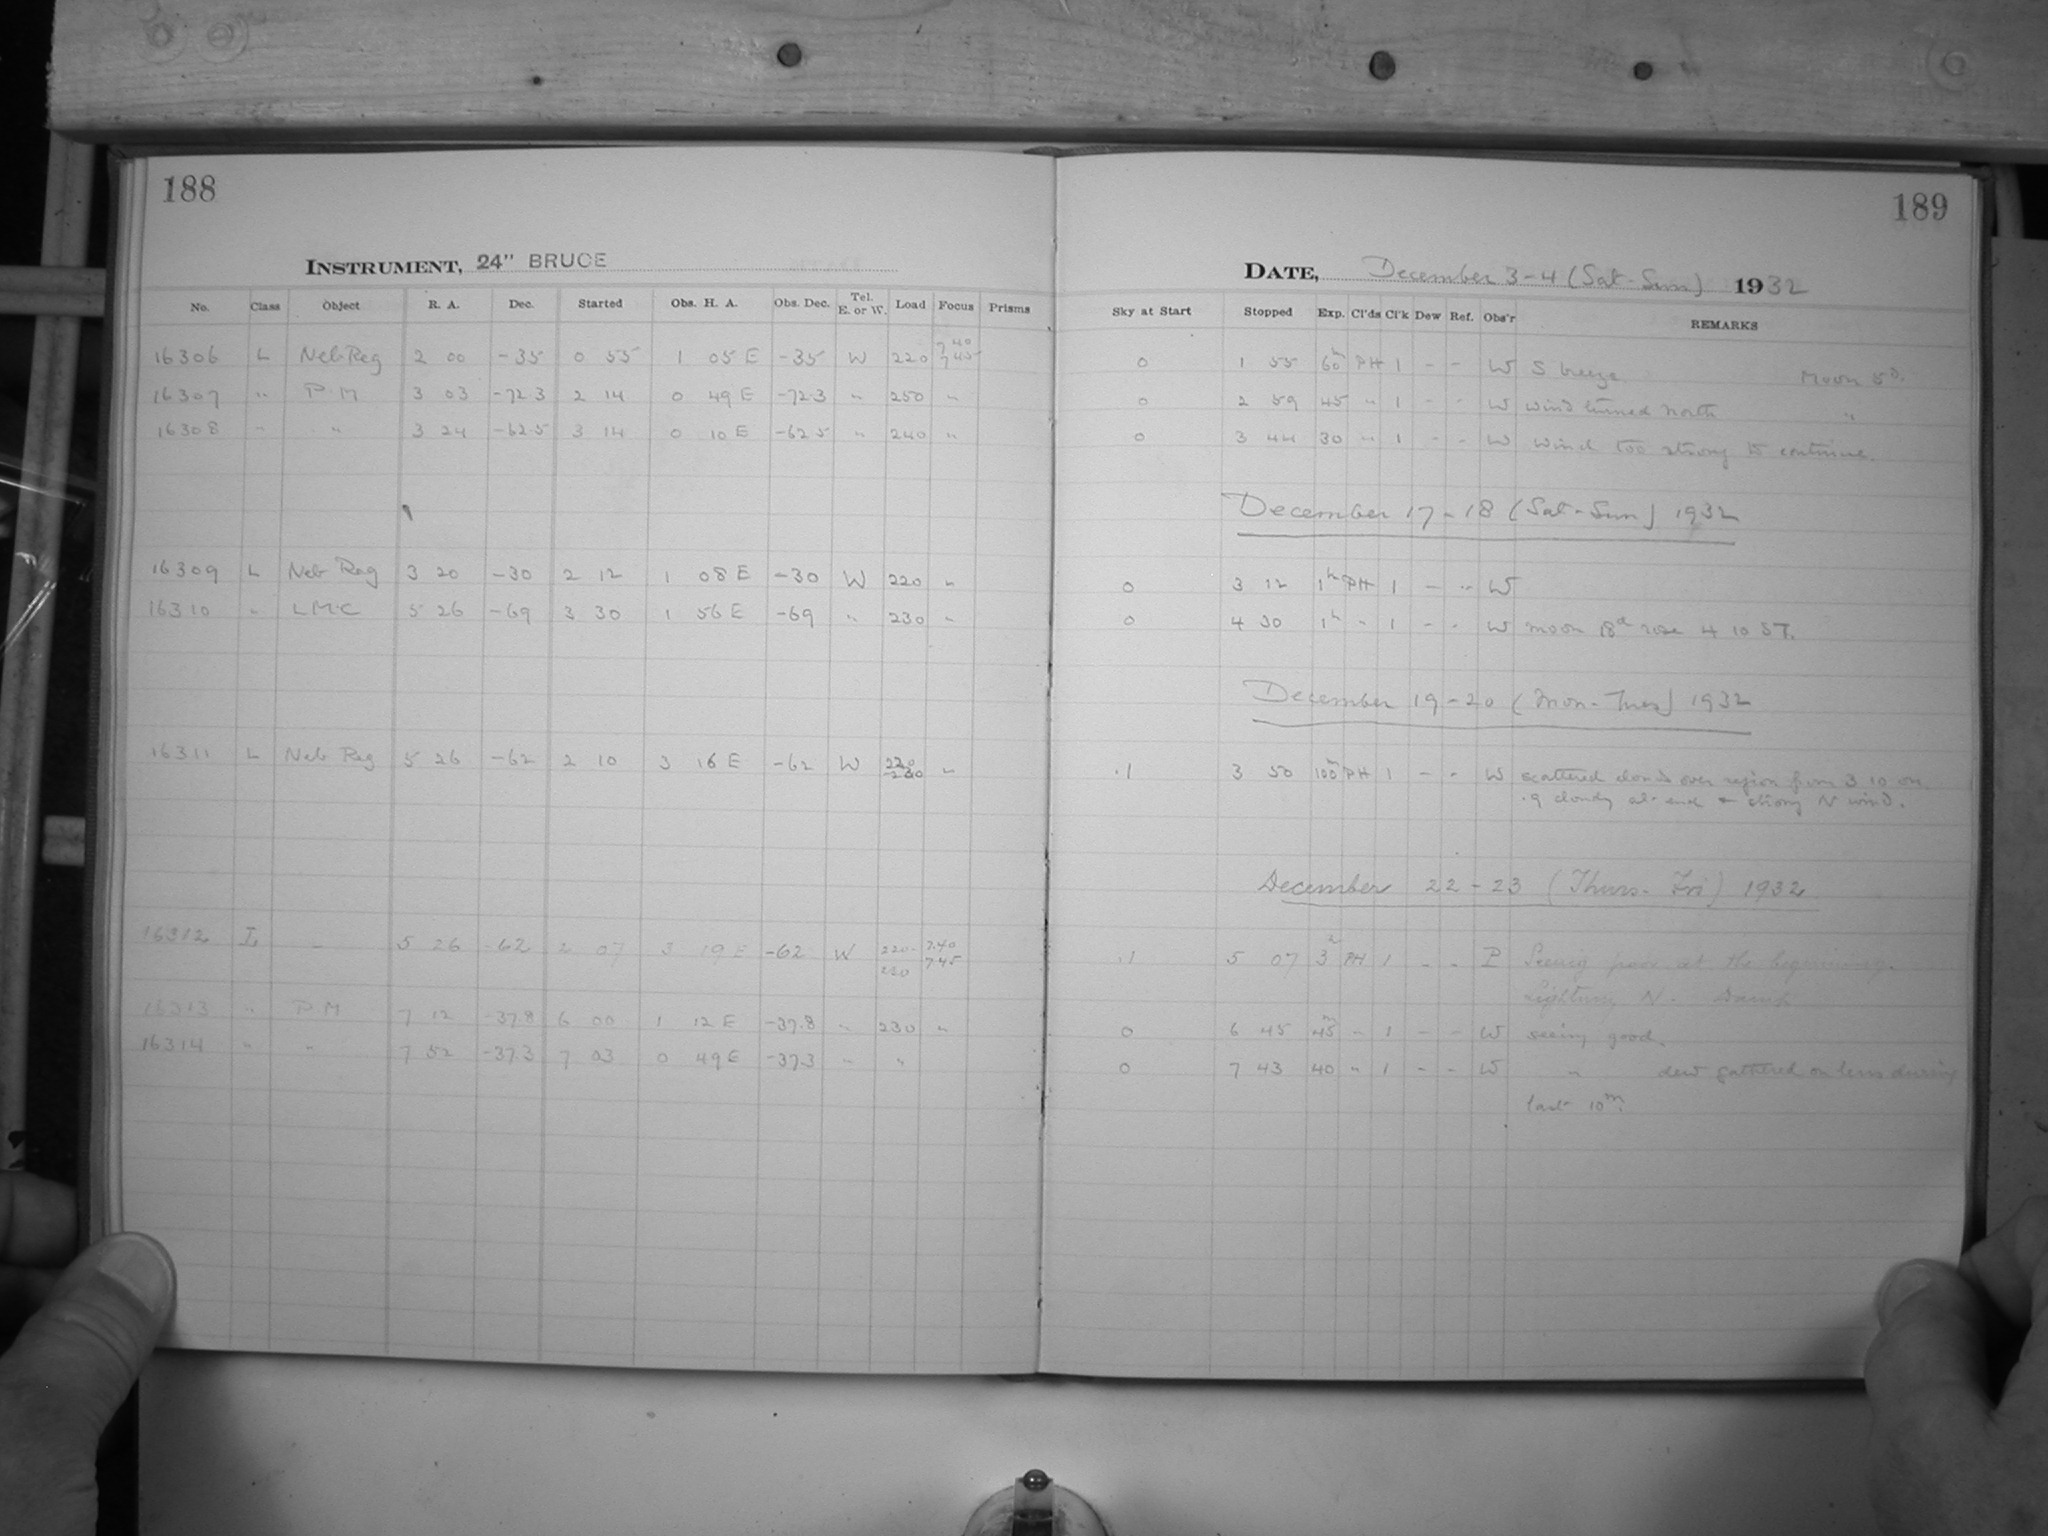 188
INSTRUMENT, 24" BRUCE
No. Class Object R. A. Dec. Started Obs. H. A. Obs. Dec. Tel. E. or W. Load Focus Prisms
16306 L Neb Reg 2 00 -35 0 55 1 05 E -35 W 220 7.40 7.45
16307 " P M 3 03 -72.3 2 14 0 49 E -72.3 " 250 "
16308 " " 3 24 -62.5 3 14 0 10 E -62.5 " 240 "
16309 L Neb Reg 3 20 -30 2 12 1 08 E -30 W 220 "
16310 " LMC 5 26 -69 3 30 1 56 E -69 " 230 "
16311 L Neb Reg 5 26 -62 2 10 3 16 E -62 W 220 -230 "
16312 L - 5 26 -62 2 07 3 19 E -62 W 220- 230 7.40 7.45
16313 " P M 7 12 -37.8 6 00 1 12 E -37.8 " 230 "
16314 " " 7 52 -37.3 7 03 0 49 E -37.3 " "
189
DATE, December 3-4 (Sat-Sun) 1932
Sky at Start Stopped Exp. Cl'ds Cl'k Dew Ref. Obs'r REMARKS
0 1 55 60 PH 1 - - W S breeze. Moon 5d.
0 2 59 45 " 1 - - W wind turned north "
0 3 44 30 " 1 - - W wind too strong to continue.
December 17-18 (Sat-Sun) 1932
0 3 12 1h PH 1 - - W
0 4 30 1h " 1 - - W moon 18d rose 4 10 ST.
December 19-20 (Mon-Tues) 1932
.1 3 50 100m PH 1 - - W scattered clouds over region from 3 10 on
.9 cloudy at end & strong N wind.
December 22-23 (Thurs-Fri) 1932
.1 5 07 3h PH 1 - - P Seeing poor at the beginning.
Lightning N. Damp
0 6 45 45m " 1 - - W seeing good.
0 7 43 40 " 1 - - W " dew gathered on lens during
last 10m.